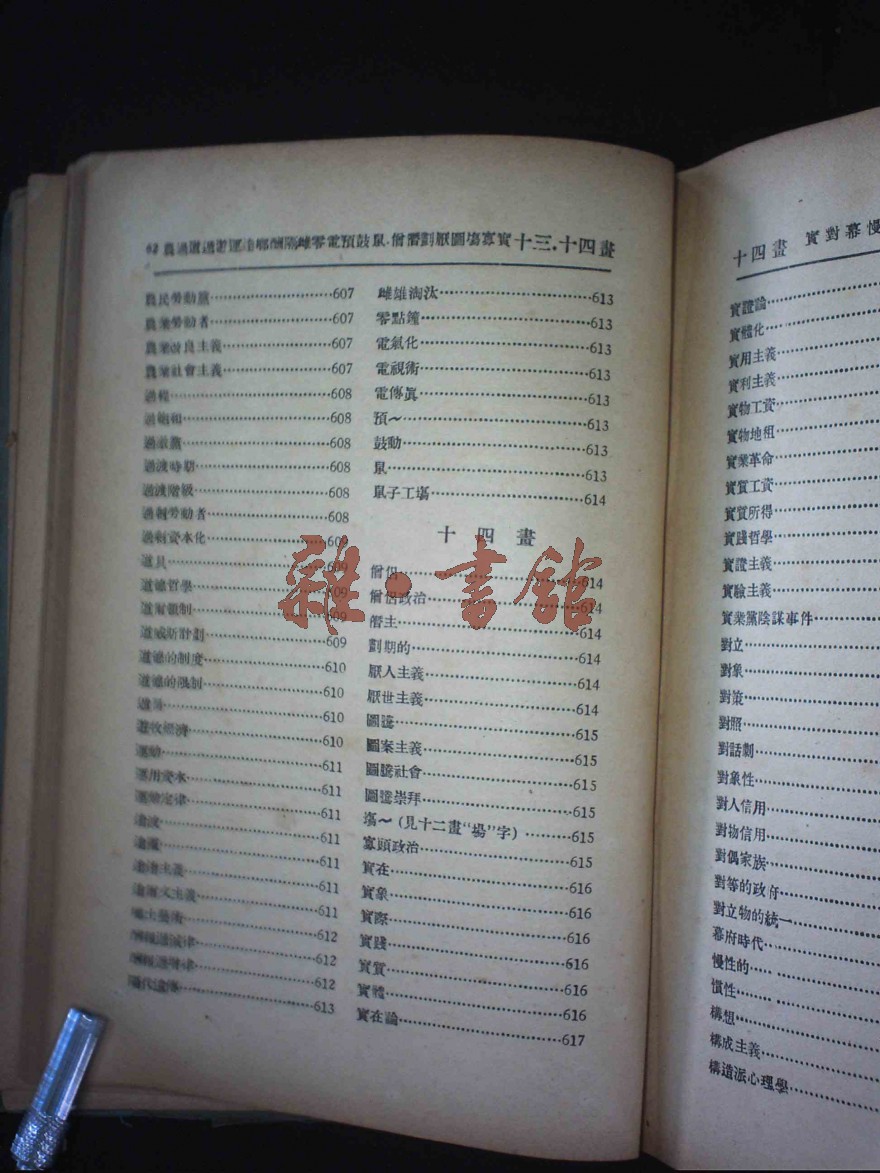 農民勞動黨……607
農業勞動者……607
農業改良主義……607
農業社會主義……607
過程……608
過飽和……608
過激黨……608
過渡時期……608
過渡階級……608
過剩勞動者……608
過剩資本化……609
道具……609
道德哲學……609
道爾頓制……609
道威斯計劃……609
道德的制度……610
道德的強制……610
610
遊牧經濟……610
運動……611
運用資本……611
運動定律……611
611
611
611
611
612
612
612
隔代遺傳……613
雌雄淘汰……613
零點鐘……613
電氣化……613
電視術……613
電傳眞……613
預～……613
鼓動……613
鼠……613
鼠子工場……614
十四畫
僧侶……614
僧侶政治……614
僭主……614
劃期的……614
厭人主義……614
厭世主義……614
圖騰……615
圖案主義……615
圖騰社會……615
圖騰崇拜……615
塲～(見十二畫“場”字)……615
寡頭政治……615
實在……616
實象……616
實際……616
實踐……616
實質……616
實體……616
實在論……617
十四畫 實對幕慢
實證論……
實體化……
實用主義……
實利主義……
實物工資……
實物地租……
實業革命……
實質工資……
實質所得……
實踐哲學……
實證主義……
實驗主義……
實業黨陰謀事件……
對立……
對象……
對策……
對照……
對話劇……
對象性……
對人信用……
對物信用……
對偶家族……
對等的政府……
對立物的統一……
幕府時代……
慢性的……
慣性……
構想……
構成主義……
構造派心理學……
雜·書館